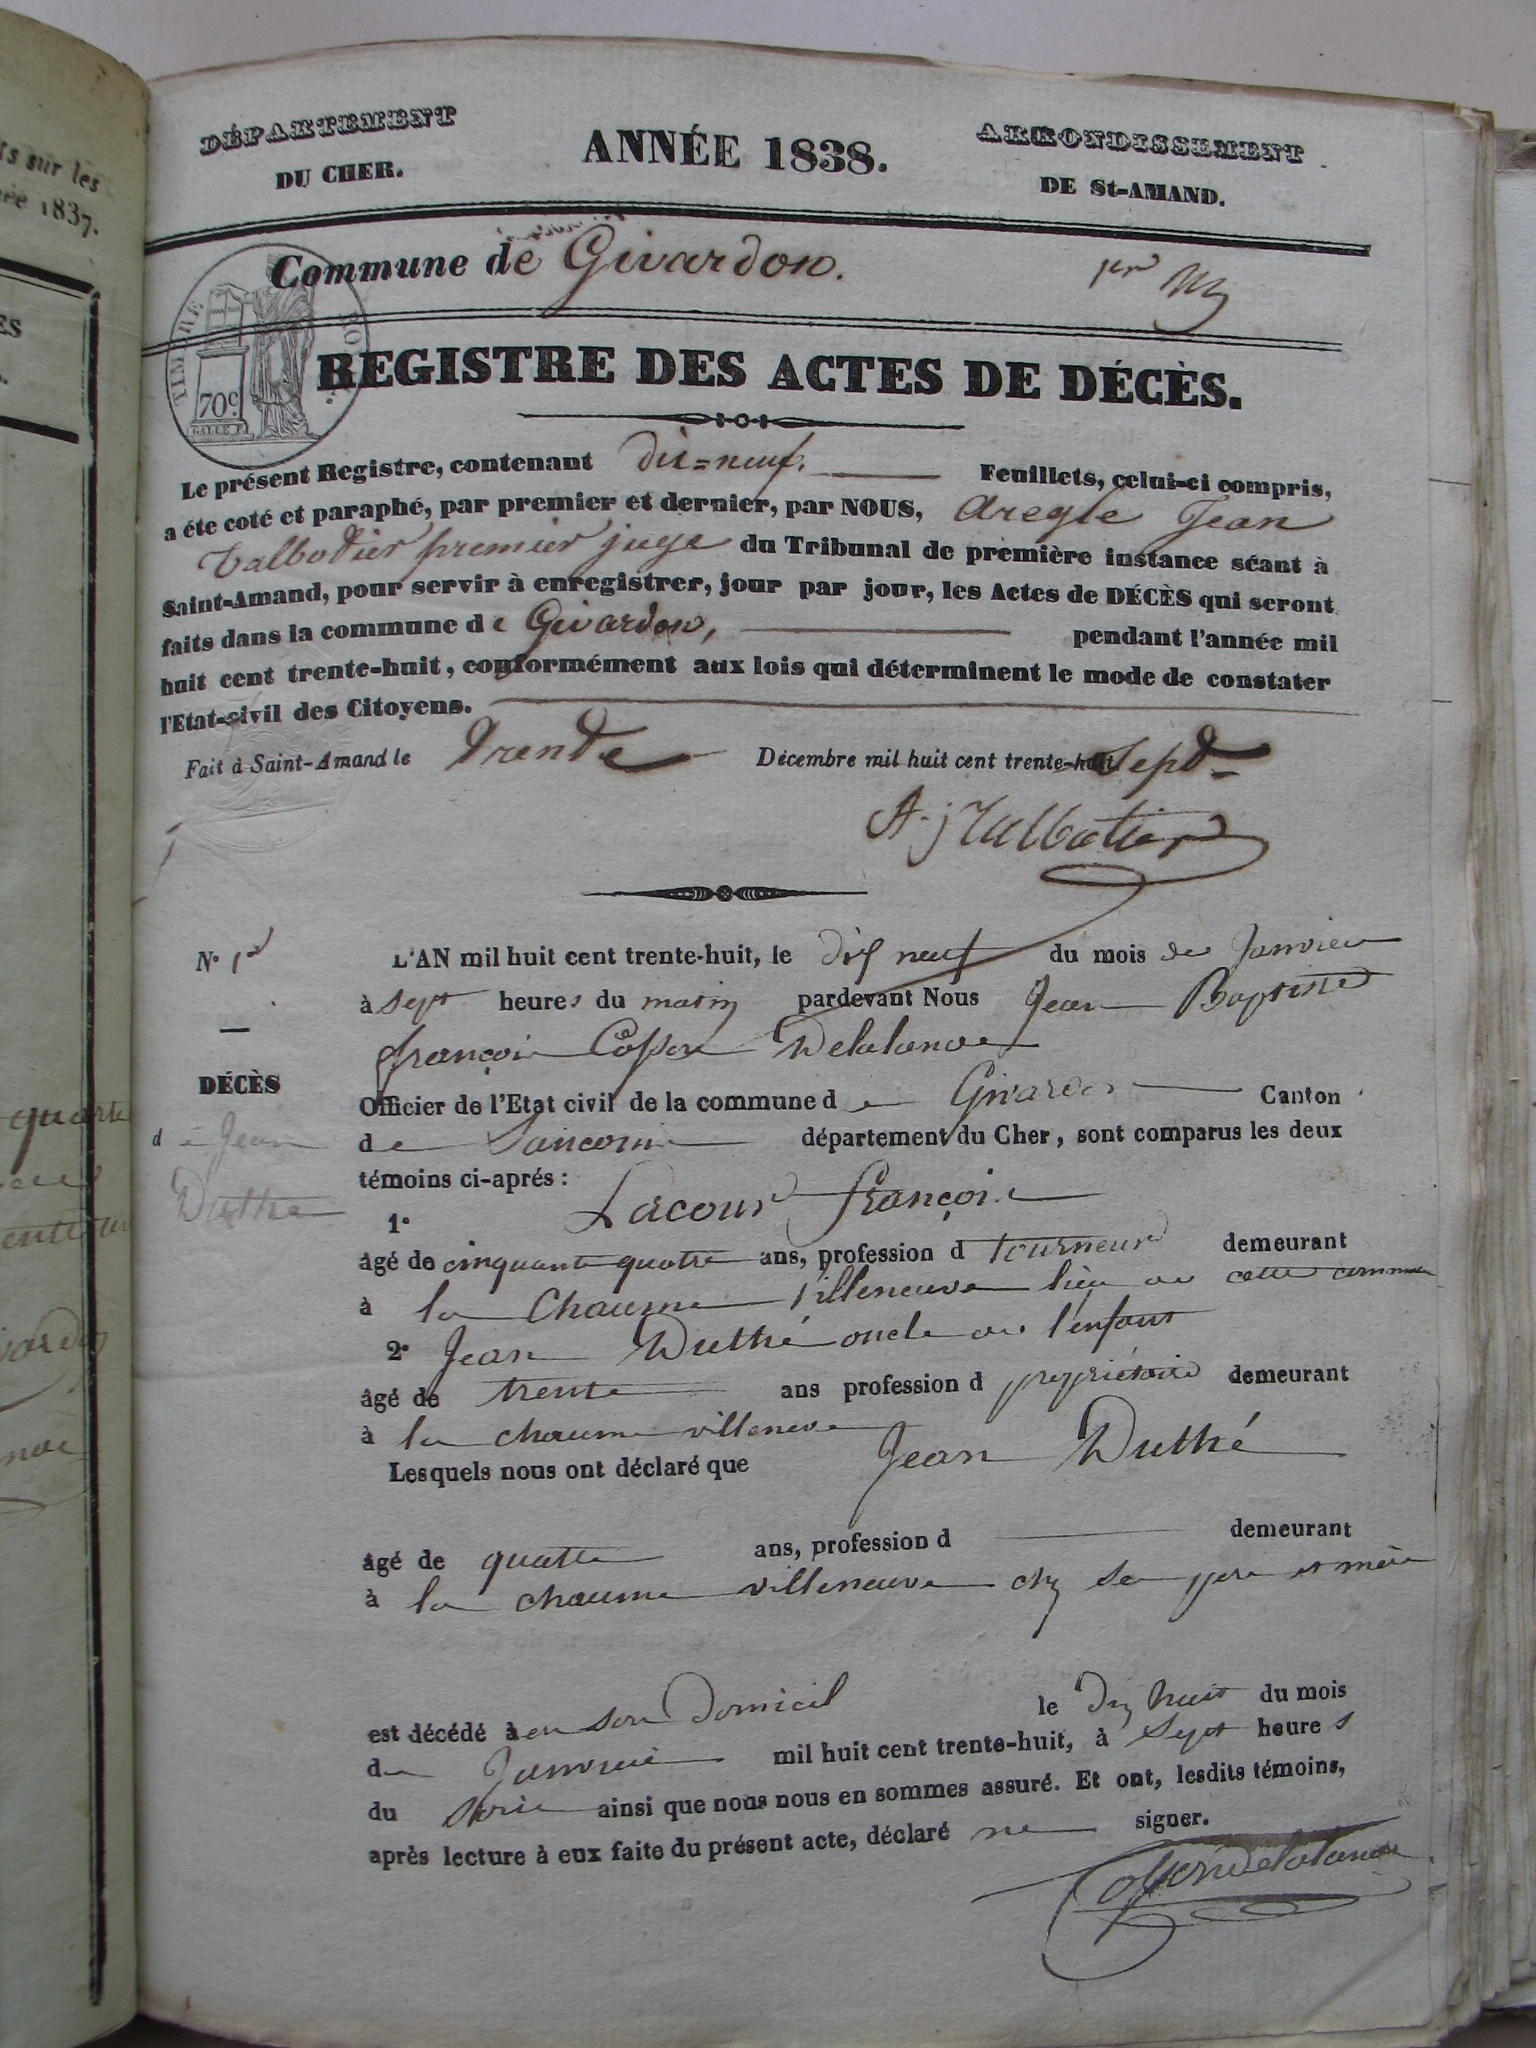 rs sur les
née 1837.
ES
DÉPARTEMENT
DU CHER.
ANNÉE 1838.
ARRONDISSEMENT
DE St-AMAND.
Commune de Givardon.
per
TIMBRE
70c.
REGISTRE DES ACTES DE DÉCÈS.
Le présent Registre, contenant dix=neuf. Feuillets, celui-ci compris,
a éte coté et paraphé, par premier et dernier, par NOUS, Jean
Talbotier premier juge du Tribunal de première instance séant à
Saint-Amand, pour servir à enregistrer, jour par jour, les Actes de DÉCÈS qui seront
faits dans la commune de Givardon, pendant l'année mil
huit cent trente-huit, conformément aux lois qui déterminent le mode de constater
l'Etat-civil des Citoyens.
Fait à Saint-Amand le Trente Décembre mil huit cent trente-huit Sept
A. J Talbotier
No 1er
L'AN mil huit cent trente-huit, le dix neuf du mois de Janvier
à sept heures du matin pardevant Nous Jean Baptiste
françois Delalande
DÉCÈS
Officier de l'Etat civil de la commune de Givardon Canton
de Jean
de Sancoins département du Cher, sont comparus les deux
Duthé
témoins ci-aprés :
1° Lacour françois
âgé de cinquante quatre ans, profession d tourneur demeurant
à la Chaume Villeneuve lieu de cette commune
2° Jean Duthé oncle de l'enfant
âgé de trente ans profession d propriétaire demeurant
à la chaume villeneuve
Lesquels nous ont déclaré que Jean Duthé
âgé de quatre ans, profession d demeurant
à la chaume villeneuve chez se pere et mère
est décédé à en son domicil le dix huit du mois
de Janvier mil huit cent trente-huit, à sept heures
du soir ainsi que nous nous en sommes assuré. Et ont, lesdits témoins,
après lecture à eux faite du présent acte, déclaré ne signer.